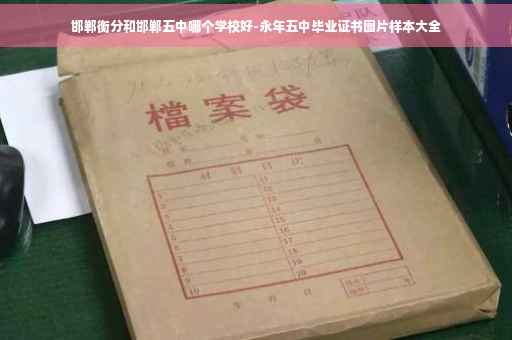 邯郸衡分和邯郸五中哪个学校好-永年五中毕业证书图片样本大全
檔案袋
材料目次
1 11
2 12
3 13
4 14
5 15
6 16
7 17
8 18
9 19
10 20
年 月 日